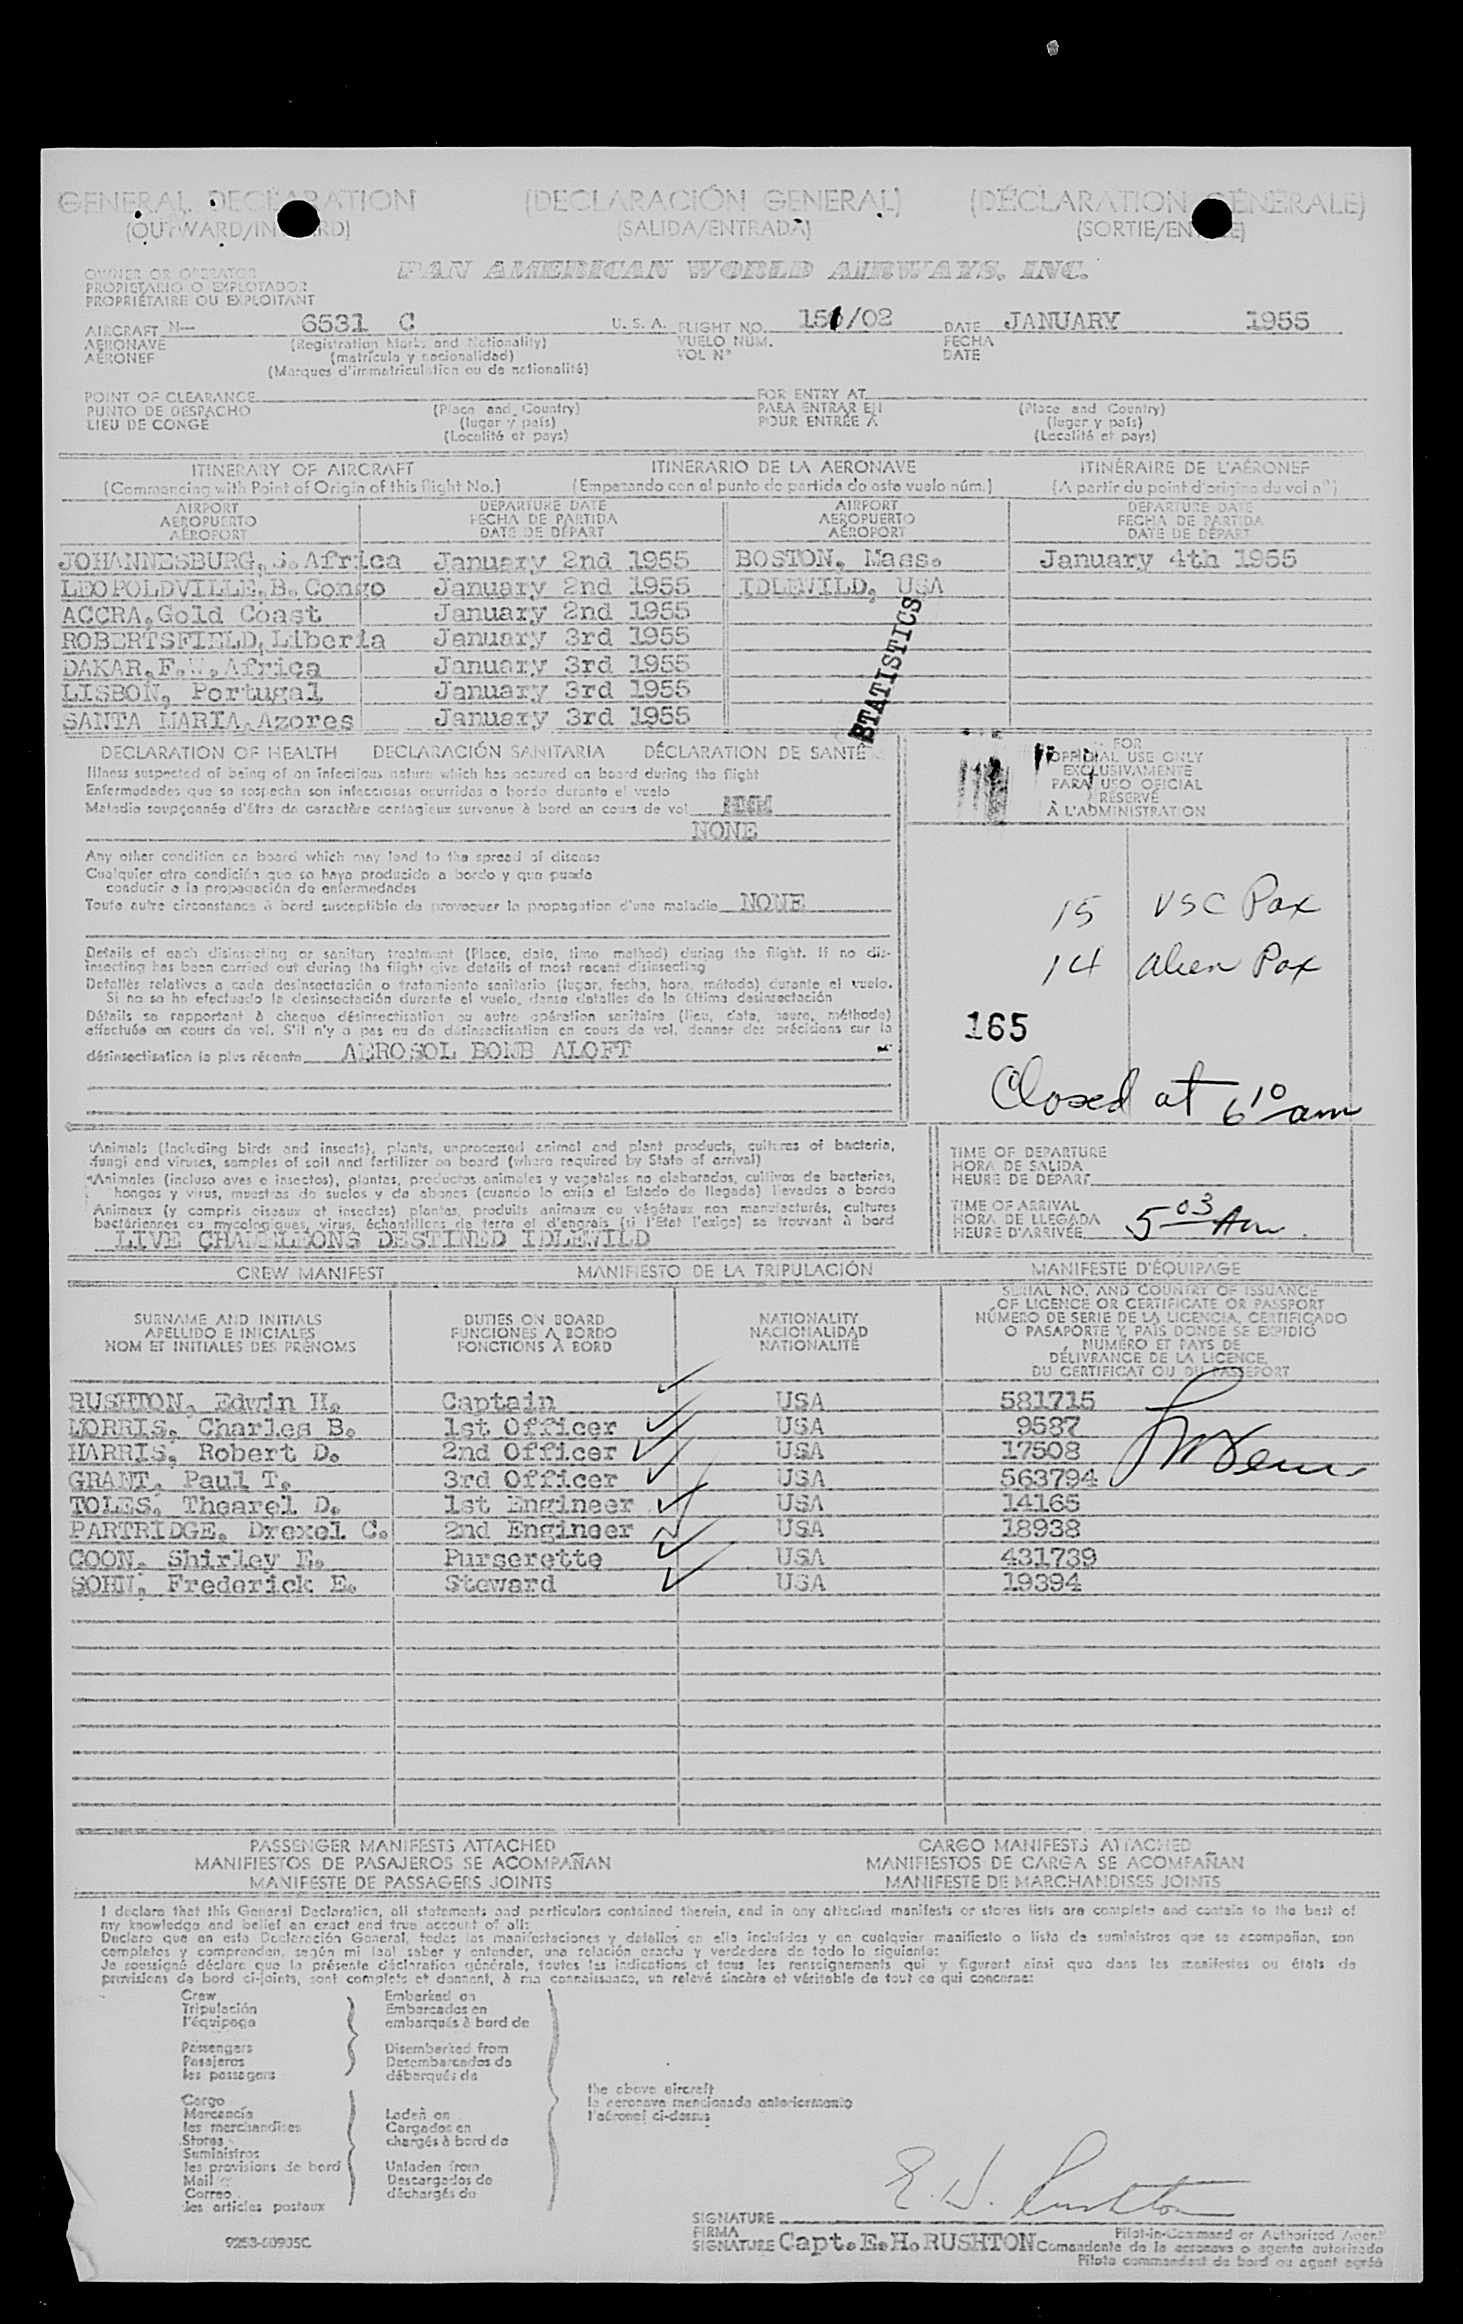 GENERAL DECLARATION (DECLARACIÓN GENERAL) (DÉCLARATION GÉNÉRALE)
(OUTWARD/INWARD) (SALIDA/ENTRADA) (SORTIE/ENTRÉE)
OWNER OR OPERATOR
PROPIETARIO O EXPLOTADOR
PROPRIÉTAIRE OU EXPLOITANT
PAN AMERICAN WORLD AIRWAYS, INC.
AIRCRAFT N— 6531 C U. S. A. FLIGHT NO. 151/02 DATE JANUARY 1955
AERONAVE (Registration Marks and Nationality) VUELO NÚM. FECHA
AÉRONEF (matrícula y nacionalidad) VOL Nº DATE
(Marques d'immatriculation ou de nationalité)
POINT OF CLEARANCE FOR ENTRY AT
PUNTO DE DESPACHO (Place and Country) PARA ENTRAR EN (Place and Country)
LIEU DE CONGÉ (lugar y país) POUR ENTRÉE À (lugar y país)
(Localité et pays) (Localité et pays)
ITINERARY OF AIRCRAFT ITINERARIO DE LA AERONAVE ITINÉRAIRE DE L'AÉRONEF
(Commencing with Point of Origin of this flight No.) (Empezando con el punto de partida de este vuelo núm.) (A partir du point d'origine du vol nº)
AIRPORT DEPARTURE DATE AIRPORT DEPARTURE DATE
AEROPUERTO FECHA DE PARTIDA AEROPUERTO FECHA DE PARTIDA
AÉROPORT DATE DE DÉPART AÉROPORT DATE DE DÉPART
JOHANNESBURG, S. Africa January 2nd 1955 BOSTON, Mass. January 4th 1955
LEOPOLDVILLE, B. Congo January 2nd 1955 IDLEWILD, USA
ACCRA, Gold Coast January 2nd 1955
ROBERTSFIELD, Liberia January 3rd 1955
DAKAR, F.W. Africa January 3rd 1955
LISBON, Portugal January 3rd 1955
SANTA MARIA, Azores January 3rd 1955
STATISTICS
DECLARATION OF HEALTH DECLARACIÓN SANITARIA DÉCLARATION DE SANTÉ
Illness suspected of being of an infectious nature which has occured on board during the flight
Enfermedades que se sospecha son infecciosas ocurridas a bordo durante el vuelo
Maladie soupçonnée d'être de caractère contagieux survenue à bord en cours de vol
NONE
Any other condition on board which may lead to the spread of disease
Cualquier otra condición que se haya producido a bordo y que pueda
conducir a la propagación de enfermedades
Toute autre circonstance à bord susceptible de provoquer la propagation d'une maladie NONE
Details of each disinsecting or sanitary treatment (Place, date, time method) during the flight. If no dis-
insecting has been carried out during the flight give details of most recent disinsecting
Detalles relativos a cada desinsectación o tratamiento sanitario (lugar, fecha, hora, método) durante el vuelo.
Si no se ha efectuado la desinsectación durante el vuelo, dense detalles de la última desinsectación
Détails se rapportant à chaque désinsectisation ou autre opération sanitaire (lieu, date, heure, méthode)
effectuée en cours de vol. S'il n'y a pas eu de désinsectisation en cours de vol, donner des précisions sur la
désinsectisation la plus récente AEROSOL BOMB ALOFT
FOR
OFFICIAL USE ONLY
EXCLUSIVAMENTE
PARA USO OFICIAL
RÉSERVÉ
À L'ADMINISTRATION
15 USC Pax
14 Alien Pax
165
Closed at 6 10 am
Animals (Including birds and insects), plants, unprocessed animal and plant products, cultures of bacteria,
fungi and viruses, samples of soil and fertilizer on board (where required by State of arrival)
Animales (incluso aves e insectos), plantas, productos animales y vegetales no elaborados, cultivos de bacterias,
hongos y virus, muestras de suelos y de abonos (cuando lo exija el Estado de llegada) llevados a bordo
Animaux (y compris oiseaux et insectes) plantes, produits animaux ou végétaux non manufacturés, cultures
bactériennes ou mycologiques, virus, échantillons de terre et d'engrais (si l'État l'exige) se trouvant à bord
LIVE CHAMELEONS DESTINED IDLEWILD
TIME OF DEPARTURE
HORA DE SALIDA
HEURE DE DÉPART
TIME OF ARRIVAL
HORA DE LLEGADA
HEURE D'ARRIVÉE 5 03 Am
CREW MANIFEST MANIFIESTO DE LA TRIPULACIÓN MANIFESTE D'ÉQUIPAGE
SURNAME AND INITIALS
APELLIDO E INICIALES
NOM ET INITIALES DES PRÉNOMS
DUTIES ON BOARD
FUNCIONES A BORDO
FONCTIONS À BORD
NATIONALITY
NACIONALIDAD
NATIONALITÉ
SERIAL NO. AND COUNTRY OF ISSUANCE
OF LICENCE OR CERTIFICATE OR PASSPORT
NÚMERO DE SERIE DE LA LICENCIA, CERTIFICADO
O PASAPORTE Y PAÍS DONDE SE EXPIDIÓ
NUMÉRO ET PAYS DE
DÉLIVRANCE DE LA LICENCE,
DU CERTIFICAT OU DU PASSEPORT
RUSHTON, Edwin H. Captain USA 581715
LORRIS, Charles B. 1st Officer USA 9587
HARRIS, Robert D. 2nd Officer USA 17508
GRANT, Paul T. 3rd Officer USA 563794
TOLES, Thearel D. 1st Engineer USA 14165
PARTRIDGE, Drexel C. 2nd Engineer USA 18938
COON, Shirley E. Purserette USA 431739
SOHN, Frederick E. Steward USA 19394
PASSENGER MANIFESTS ATTACHED CARGO MANIFESTS ATTACHED
MANIFIESTOS DE PASAJEROS SE ACOMPAÑAN MANIFIESTOS DE CARGA SE ACOMPAÑAN
MANIFESTE DE PASSAGERS JOINTS MANIFESTE DE MARCHANDISES JOINTS
I declare that this General Declaration, all statements and particulars contained therein, and in any attached manifests or stores lists are complete and contain to the best of
my knowledge and belief an exact and true account of all:
Declaro que en esta Declaración General, todas las manifestaciones y detalles en ella incluídos y en cualquier manifiesto o lista de suministros que se acompañan, son
completos y comprenden, según mi leal saber y entender, una relación exacta y verdadera de todo lo siguiente:
Je soussigné déclare que la présente déclaration générale, toutes les indications et tous les renseignements qui y figurent ainsi que dans les manifestes ou états de
provisions de bord ci-joints, sont complets et donnent, à ma connaissance, un relevé sincère et véritable de tout ce qui concerne:
Crew Embarked on
Tripulación Embarcados en
l'équipage embarqués à bord de
Passengers Disembarked from
Pasajeros Desembarcados de
les passagers débarqués de
the above aircraft
la aeronave mencionada anteriormente
l'aéronef ci-dessus
Cargo
Mercancía Laden on
les marchandises Cargados en
Stores chargés à bord de
Suministros
les provisions de bord Unladen from
Mail Descargados de
Correo déchargés de
les articles postaux
E. H. Rushton
SIGNATURE
FIRMA
SIGNATURE Capt. E. H. RUSHTON
Pilot-in-Command or Authorized Agent
Comandante de la aeronave o agente autorizado
Pilote commandant de bord ou agent agréé
9253-60935C